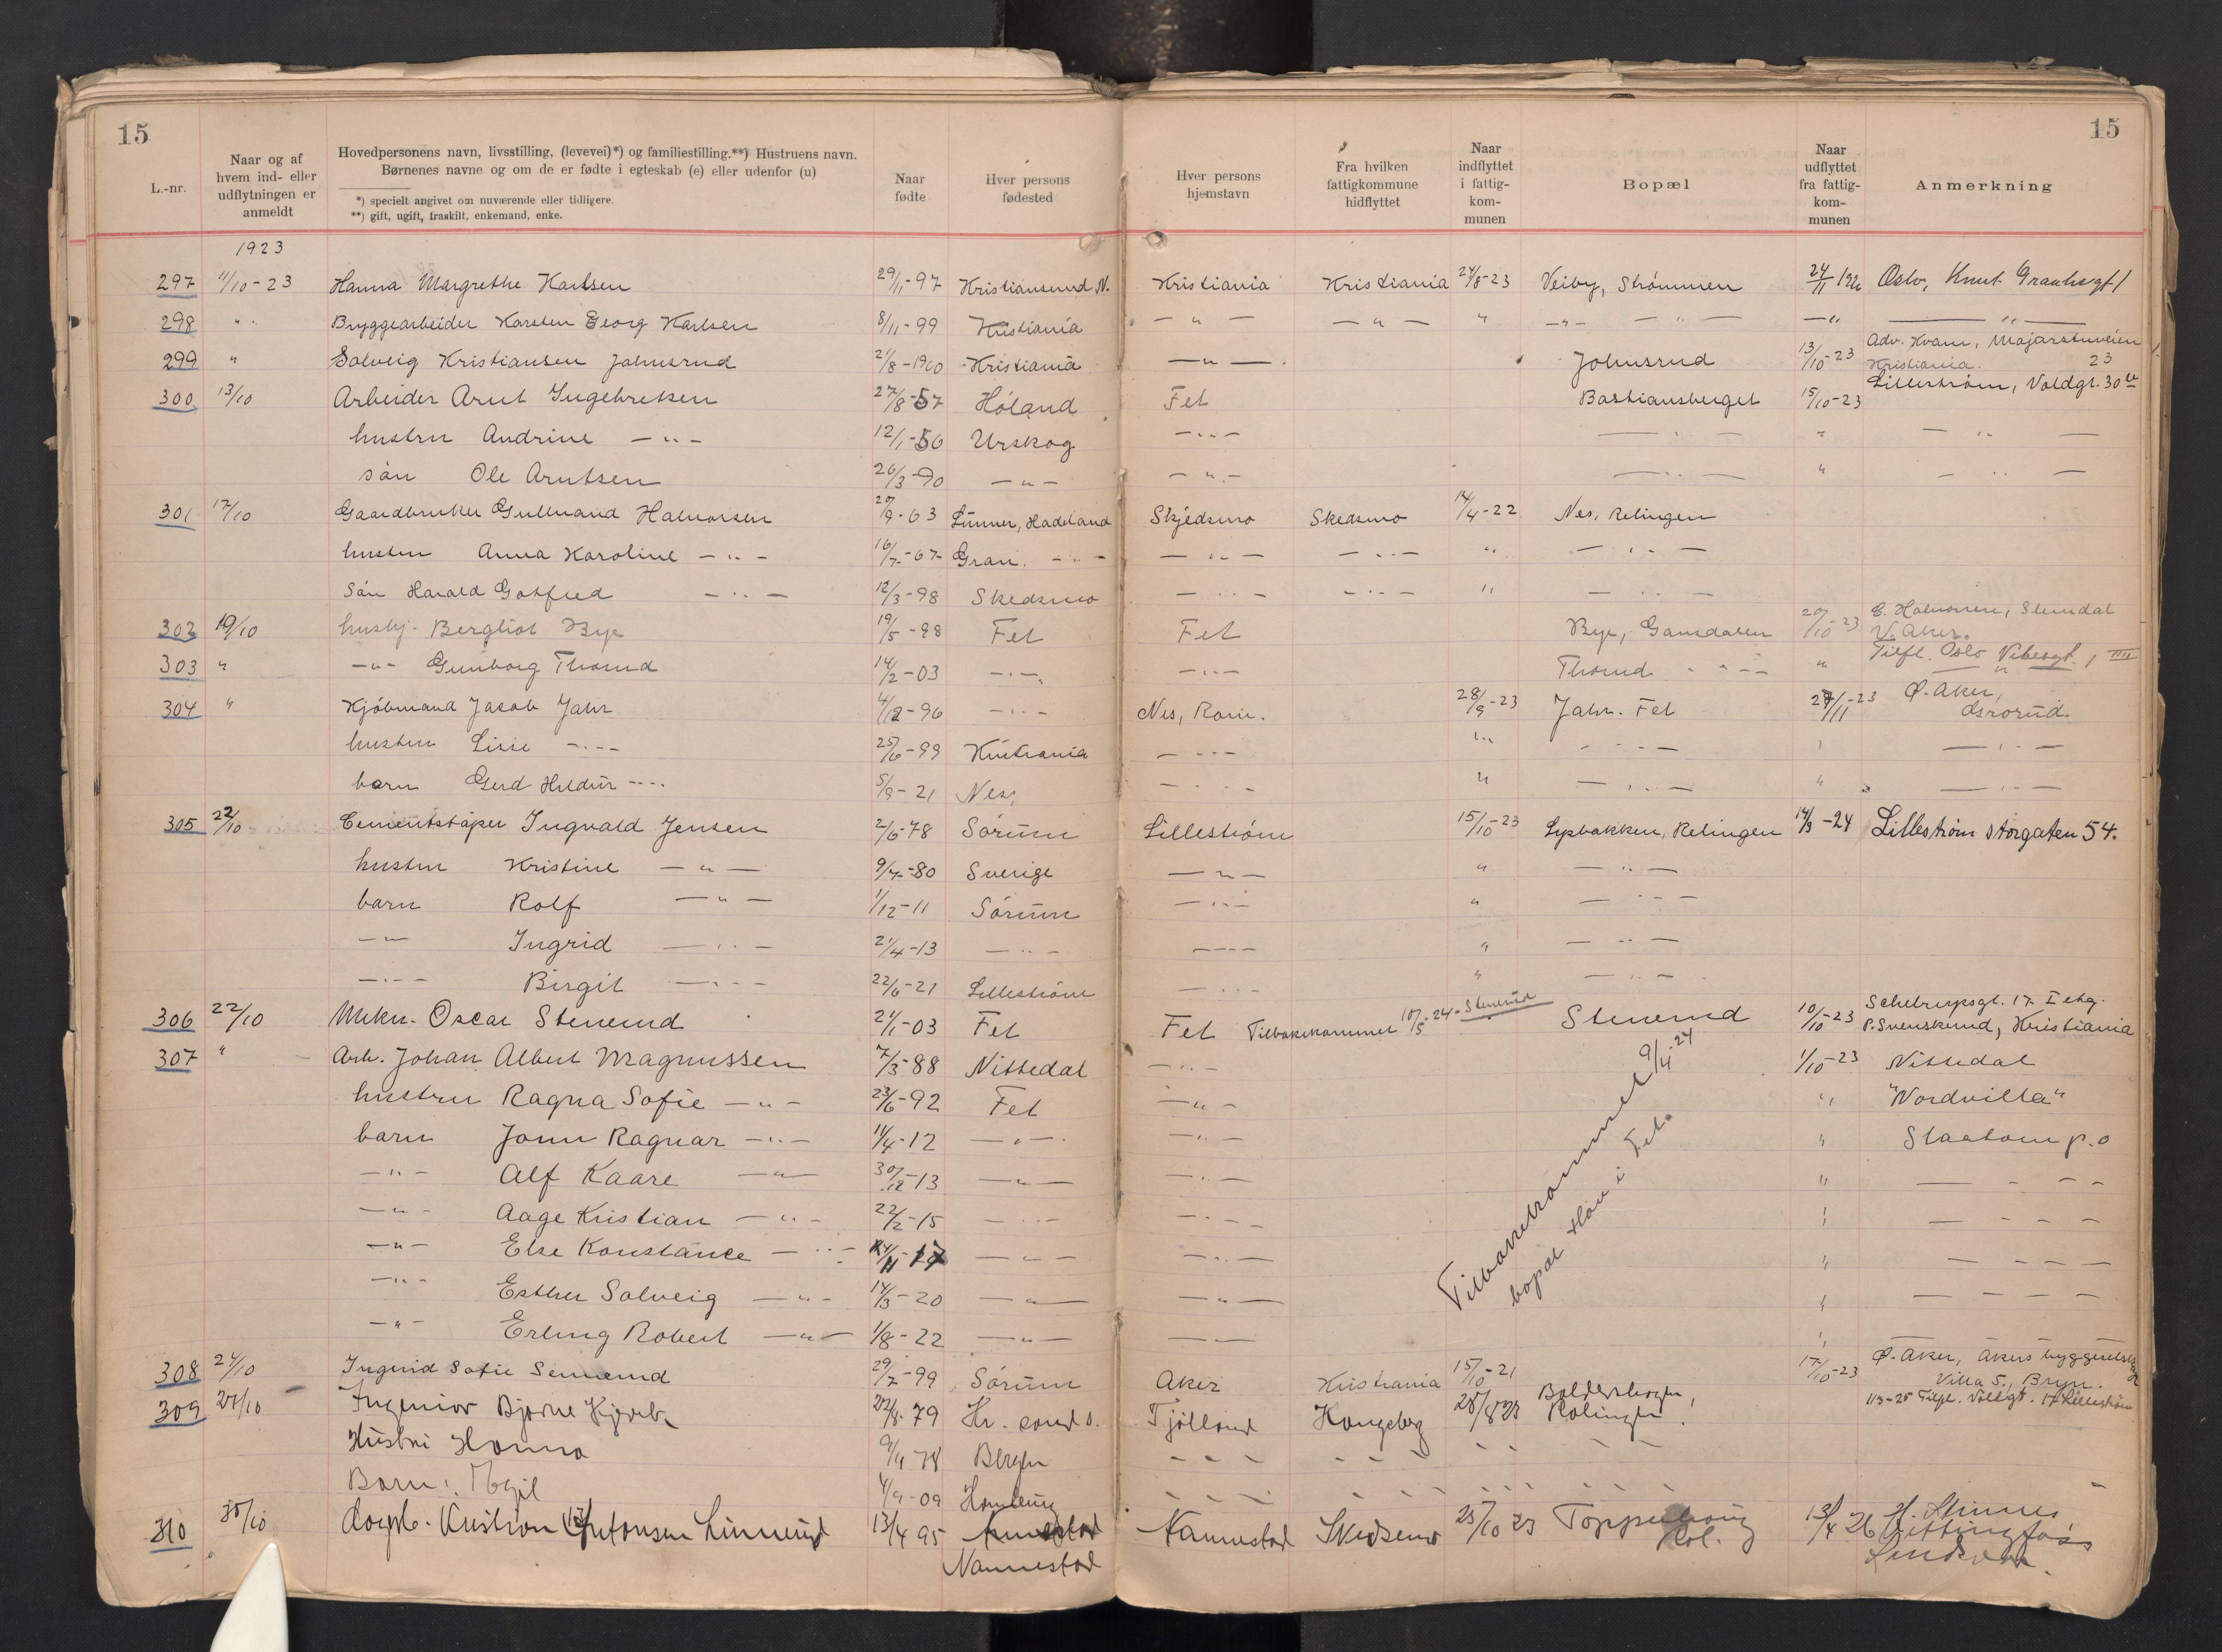 15
15
L.-nr.
Naar og af
hvem ind- eller
udflytningen er
anmeldt
Hovedpersonens navn, livsstilling, (levevei)*) og familiestilling.**) Hustruens navn.
Børnenes navne og om de er fødte i egteskab (e) eller udenfor (u)
*) specielt angivet om nuværende eller tidligere.
**) gift, ugift, fraskilt, enkemand, enke.
Naar
fødte
Hver persons
fødested
Hver persons
hjemstavn
Fra hvilken
fattigkommune
hidflyttet
Naar
indflyttet
i fattig-
kom-
munen
Bopæl
Naar
udflyttet
fra fattig-
kom-
munen
Anmerkning
1923
297 11/10-23 Hanna Margrethe Karlsen 29/11-97 Kristiansund N. Kristiania Kristiania 24/8-23 Veiby, Strømmen 24/11 1926 Oslo, Knut
298 " Bryggearbeider Karsten Georg Karlsen 8/11-99 Kristiania — " — — " — " — " — — " — — " — " —
299 " Solveig Kristiansen Johnsrud 2/8-1900 Kristiania — " — Johnsrud 13/10-23 Adv. Kvam, Majorstuveien 23
Kristiania.
300 13/10 Arbeider Arnt Ingebretsen 27/8-57 Høland Fet Bastiansberget 15/10-23 Lillestrøm, Voldgt. 30
hustru Andrine — " — 12/1-56 Urskog — " — — " — " — " —
søn Ole Arntsen 26/3-90 — " — — " — — " — " — " —
301 17/10 Gaardbruker Gulbrand Halvorsen 29/9-63 Lunner, Hadeland Skjedsmo Skedsmo 14/4-22 Nes, Relingen
hustru Anna Karoline — " — 16/7-67 Gran. — " — — " — — " — " — " —
Søn Harald Gotfred — " — 12/3-98 Skedsmo — " — — " — " — " —
302 19/10 hushj. Bergliot Bye 19/5-98 Fet Fet Bye, Gansdalen 20/10-23 E. Halvorsen, Slemdal
V. Aker.
303 " — " — Gunborg Thorud 14/2-03 — " — — " — Thorud — " — " Tilfl. Oslo Vibesgt. 1 III
304 " Kjøbmand Jacob Jahr 4/12-96 — " — Nes, Rom. 28/9-23 Jahr. Fet 27/11-23 Ø. Aker,
hustru Lisie — " — 25/6-99 Kristiania — " — " — " — " — " —
barn Gerd Hildur — " — 5/9-21 Nes, — " — " — " — " — " —
305 22/10 Cementstøper Ingvald Jensen 2/6-78 Sørum Lillestrøm 15/10-23 Lysbakken, Relingen 14/3-24 Lillestrøm Storgaten 54.
hustru Kristine — " — 9/7-80 Sverige — " — " — " —
barn Rolf — " — 1/12-11 Sørum — " — " — " —
— " — Ingrid — " — 2/4-13 — " — — " — " — " —
— " — Birgit — " — 22/6-21 Lillestrøm — " — " — " —
306 22/10 Oscar Stenerud 21/1-03 Fet Fet Tilbakekommet 10/5-24 Stenerud Stenerud 10/10-23 17 I etg.
P. Svenskerud, Kristiania
307 " Arb. Johan Albert Magnussen 7/3-88 Nittedal — " — 1/10-23 Nittedal
hustru Ragna Sofie — " — 23/6-92 Fet — " — " "Nordvilla"
barn Jonn Ragnar — " — 11/4-12 — " — — " — " Slaatom p.o
— " — Alf Kaare — " — 30/12-13 — " — — " — " — " —
— " — Aage Kristian — " — 22/2-15 — " — — " — " — " —
— " — Else Konstance — " — 14/11-17 — " — — " — " — " —
— " — Esther Solveig — " — 14/3-20 — " — — " — " — " —
— " — Erling Robert — " — 1/8-22 — " — — " — "
Tilbakekommet 9/4-24
bopæl i Fet.
308 24/10 Ingrid Sofie 29/7-99 Sørum Aker Kristiania 15/10-21 17/10-23 Ø. Aker, Akers byggeselskap
Villa 5, Bryn.
309 24/10 Ingeniør Bjarne 22/8-79 Kr. sund Tjølland Kongsberg 28/8 23 Rælingen 1/3-25 Tilfl. Lillestrøm
Hustru Hanna 78 Bergen — " — — " — — " —
Barn: 4/9-09 Hamburg
310 30/10 Kristian Antonsen Linnerud 13/4 95 Nannestad Nannestad Skedsmo 25/10 23 13/4 26
Nannestad